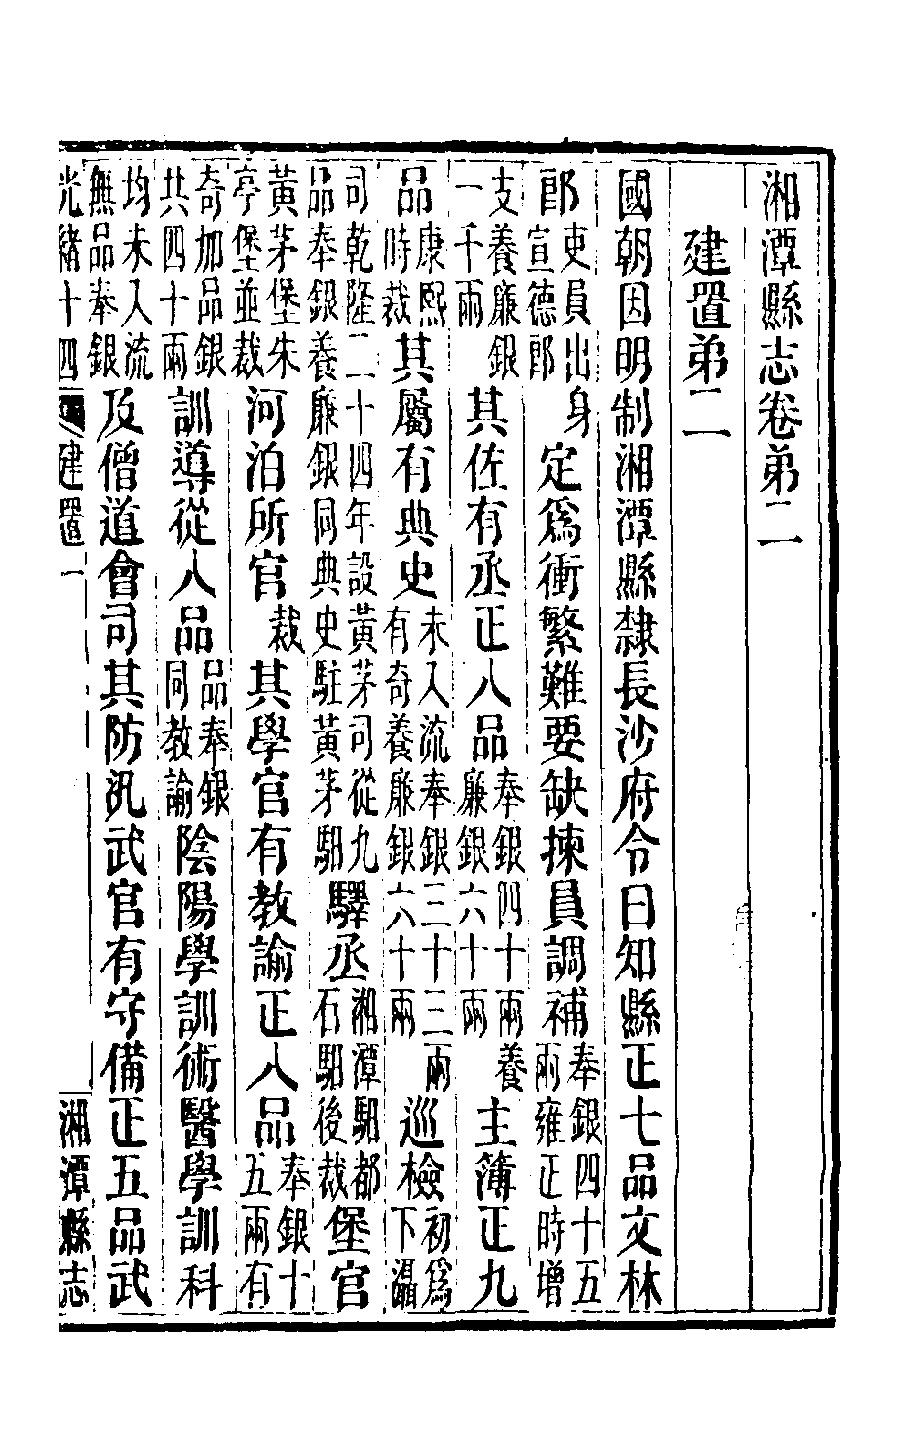 湘潭縣志卷弟二
建置弟二
國朝因明制湘潭縣隸長沙府令曰知縣正七品文林
郎吏員出身宣德郎定爲衝繁難要缺揀員調補奉銀四十五兩雍正時增
支養廉銀一千兩其佐有丞正八品奉銀四十兩養廉銀六十兩主簿正九
品康熙時裁其屬有典史未入流奉銀三十三兩有奇養廉銀六十兩巡檢初爲下灄
司乾隆二十四年設黃茅司從九品奉銀養廉銀同典史駐黃茅馹驛丞湘潭馹都石馹後裁堡官
黃茅堡朱亭堡並裁河泊所官裁其學官有教諭正八品奉銀十五兩有
奇加品銀共四十兩訓導從八品品奉銀同教諭陰陽學訓術醫學訓科
均未入流無品奉銀及僧道會司其防汛武官有守備正五品武
光緒十四 建置 一 湘潭縣志